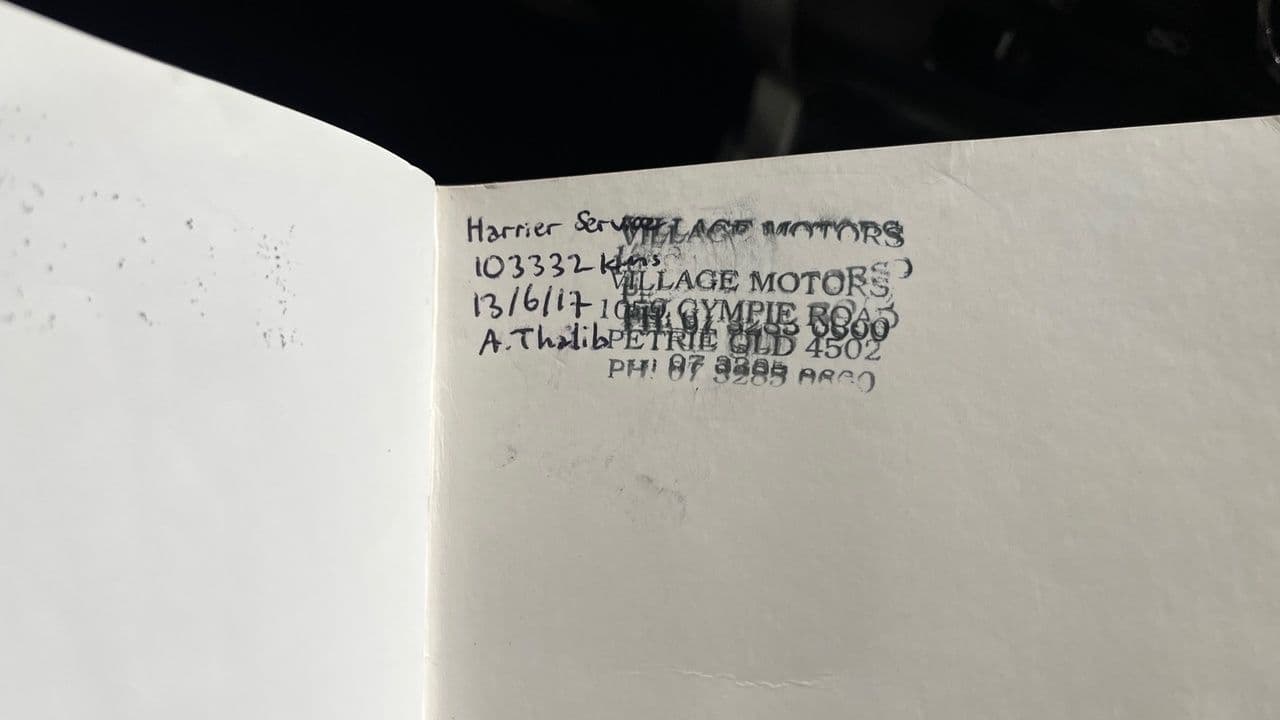 Harrier Service
103332 kms
13/6/17
A.Thalib
VILLAGE MOTORS
VILLAGE MOTORS
GYMPIE ROAD
PETRIE QLD 4502
PH: 07 3285